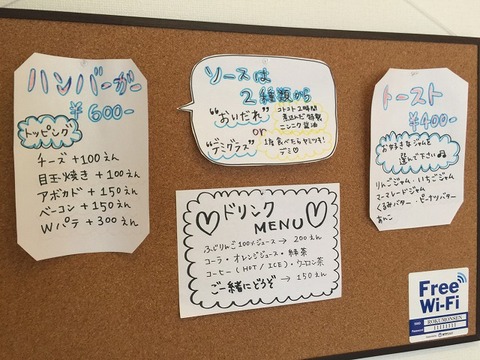 ハンバーガー
¥600-
トッピング
チーズ +100えん
目玉焼き +100えん
アボカド +150えん
ベーコン +150えん
Wパテ +300えん
ソースは
2種類から
"おいだれ"
コトコト2時間
煮込んだ特製
ニンニク醤油
or
"デミグラス"
1度食べたらヤミツキ!
デミ
ドリンク
MENU
ふじりんご100%ジュース → 200えん
コーラ・オレンジジュース・緑茶
コーヒー(HOT/ICE)・ウーロン茶
ご一緒にどうぞ → 150えん
トースト
¥400-
お好きなジャムを
選んで下さい
りんごジャム・いちごジャム
マーマレードジャム
くるみバター・ピーナツバター
あんこ
Free
Wi-Fi